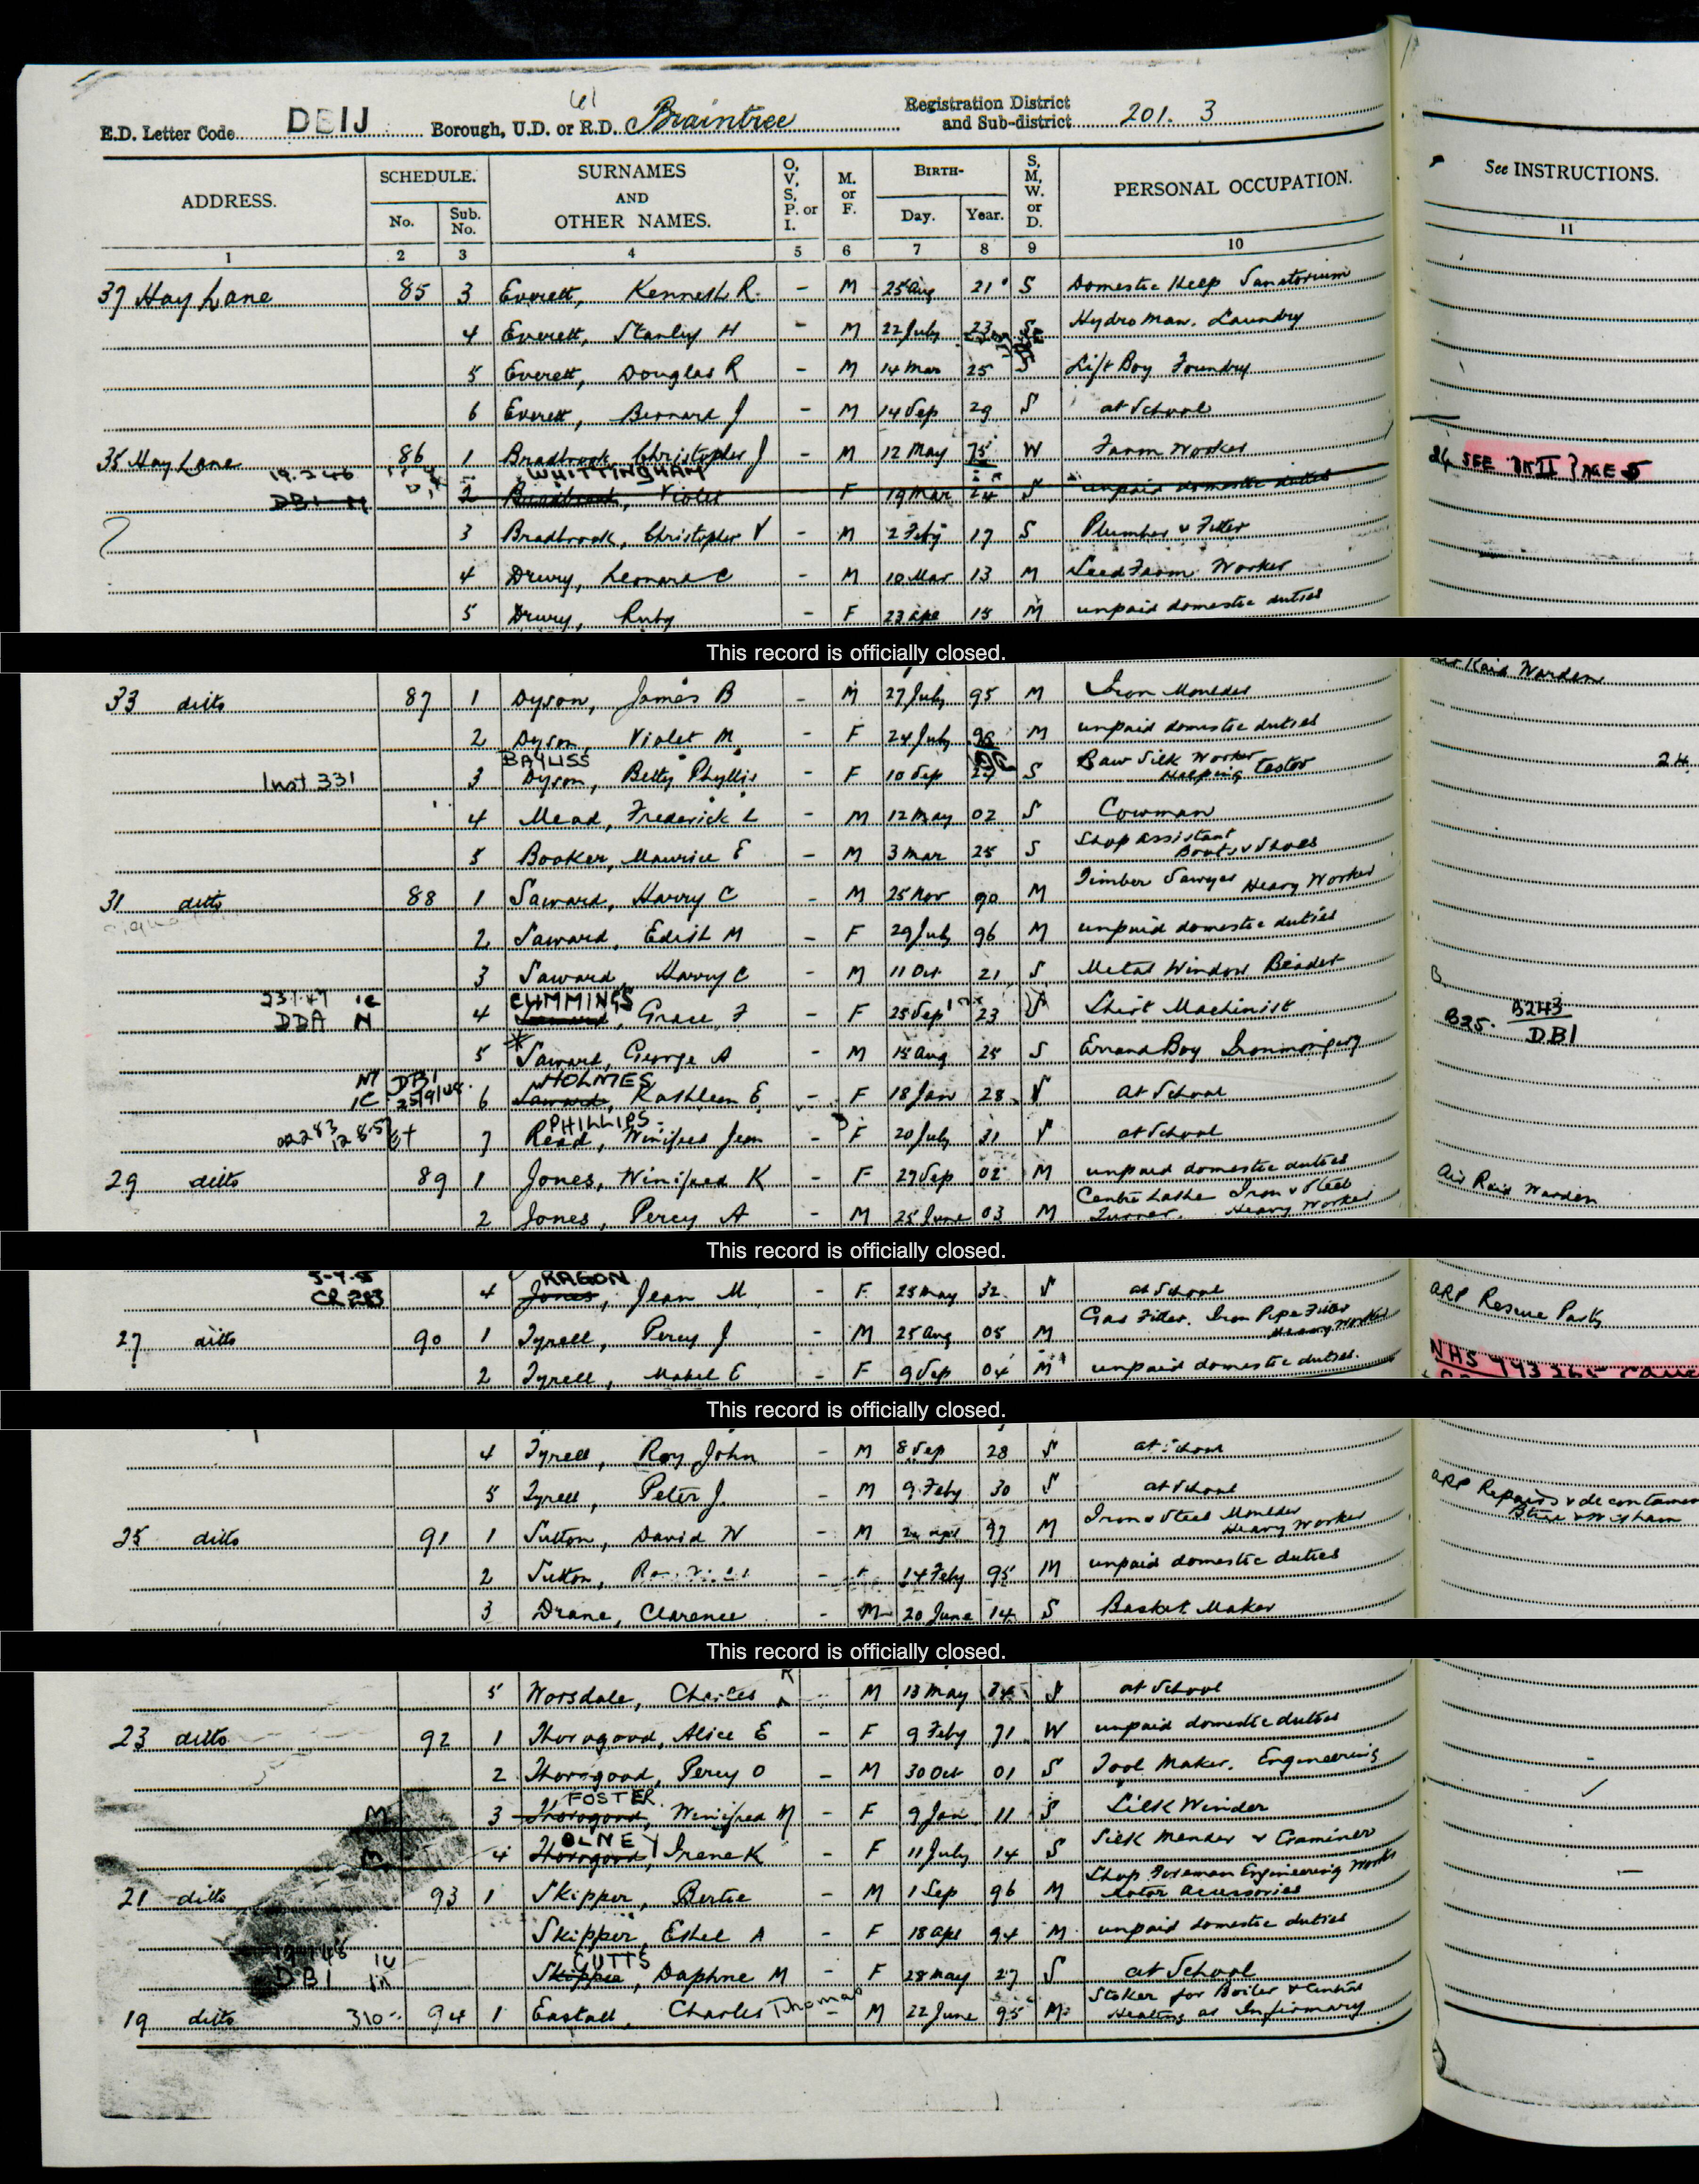 61
E.D. Letter Code DBIJ Borough, U.D. or R.D. Braintree Registration District and Sub-district 201. 3
ADDRESS. SCHEDULE. No. Sub. No. SURNAMES AND OTHER NAMES. O, V, S, P. or I. M. or F. BIRTH- Day. Year. S, M, W. or D. PERSONAL OCCUPATION. See INSTRUCTIONS.
1 2 3 4 5 6 7 8 9 10 11
37 Hay Lane 85 3 Everett, Kenneth R. - M 25 Aug 21 S Domestic Help Sanatorium
4 Everett, Stanley H - M 22 July 23 Hydro Man. Laundry
5 Everett, Douglas R - M 14 Mar 25 S Lift Boy Foundry
6 Everett, Bernard J - M 14 Sep 29 S at School
35 Hay Lane 86 1 Bradbrook, Christopher J - M 12 May 75 W Farm Worker
19.2.46 WHITTINGHAM
DBI N 2 Bradbrook, Violet F 19 Mar 24 S unpaid domestic duties 24 SEE BK II PAGE 5
3 Bradbrook, Christopher V - M 2 Feby 17 S Plumber & Fitter
4 Drury, Leonard C - M 10 Mar 13 M Seed Farm Worker
5 Drury, Ruby - F 23 Apr 15 M unpaid domestic duties
This record is officially closed.
Raid Warden
33 ditto 87 1 Dyson, James B - M 27 July 95 M Iron Moulder
2 Dyson, Violet M - F 24 July 98 M unpaid domestic duties
BAYLISS
Inst 331 3 Dyson, Betty Phyllis - F 10 Sep S Raw Silk Worker Helping Tester 24
4 Mead, Frederick L - M 12 May 02 S Cowman
5 Booker, Maurice E - M 3 Mar 25 S Shop Assistant Boots & Shoes
31 ditto 88 1 Saward, Harry C - M 25 Nov 90 M Timber Sawyer Heavy Worker
2 Saward, Edith M - F 29 July 96 M unpaid domestic duties
3 Saward, Harry C - M 11 Oct 21 S Metal Window Bender
CUMMINGS
DDA N 4 Saward, Grace F - F 25 Sep 23 S Shirt Machinist B25. B243 DBI
5 Saward, George A - M 15 Aug 25 S Errand Boy Ironmongery
HOLMES
DBI 25/9/48 6 Saward, Kathleen E - F 18 Jan 28 S At School
PHILLIPS
7 Read, Winifred Jean - F 20 July 31 S at School
29 ditto 89 1 Jones, Winifred K - F 27 Sep 02 M unpaid domestic duties Air Raid Warden
2 Jones, Percy A - M 25 June 03 M Centre Lathe Iron & Steel Turner. Heavy Worker
This record is officially closed.
RAGON
CR 283 4 Jones, Jean M - F 25 May 32 S at School ARP Rescue Party
27 ditto 90 1 Tyrell, Percy J - M 25 Aug 05 M Gas Fitter. Iron Pipe Fitter Heavy Worker
2 Tyrell, Mabel E - F 9 Sep 04 M unpaid domestic duties. NHS 793265
This record is officially closed.
4 Tyrell, Roy John - M 8 Sep 28 S at School
5 Tyrell, Peter J. - M 9 Feby 30 S at School ARP Repairs & decontamin
25 ditto 91 1 Sutton, David W - M 24 Apl 97 M Iron & Steel Moulder Heavy Worker
2 Sutton, - F 14 Feby 95 M unpaid domestic duties
3 Drane, Clarence - M 20 June 14 S Basket Maker
This record is officially closed.
5 Worsdale, Charles R - M 13 May 34 S at School
23 ditto 92 1 Thorogood, Alice E - F 9 Feby 71 W unpaid domestic duties
2 Thorogood, Percy O - M 30 Oct 01 S Tool Maker. Engineering
FOSTER
M 3 Thorogood, Winifred M - F 9 Jan 11 S Silk Winder
OLNEY
M 4 Thorogood, Irene K - F 11 July 14 S Silk Mender & Examiner
21 ditto 93 1 Skipper, Bertie - M 1 Sep 96 M Shop Foreman Engineering Works Motor Accessories
Skipper, Ethel A - F 18 Apl 94 M unpaid domestic duties
CUTTS
DBI Skipper, Daphne M - F 28 May 27 S at School
19 ditto 310 94 1 Eastall, Charles Thomas - M 22 June 95 M Stoker for Boiler & Central Heating at Infirmary